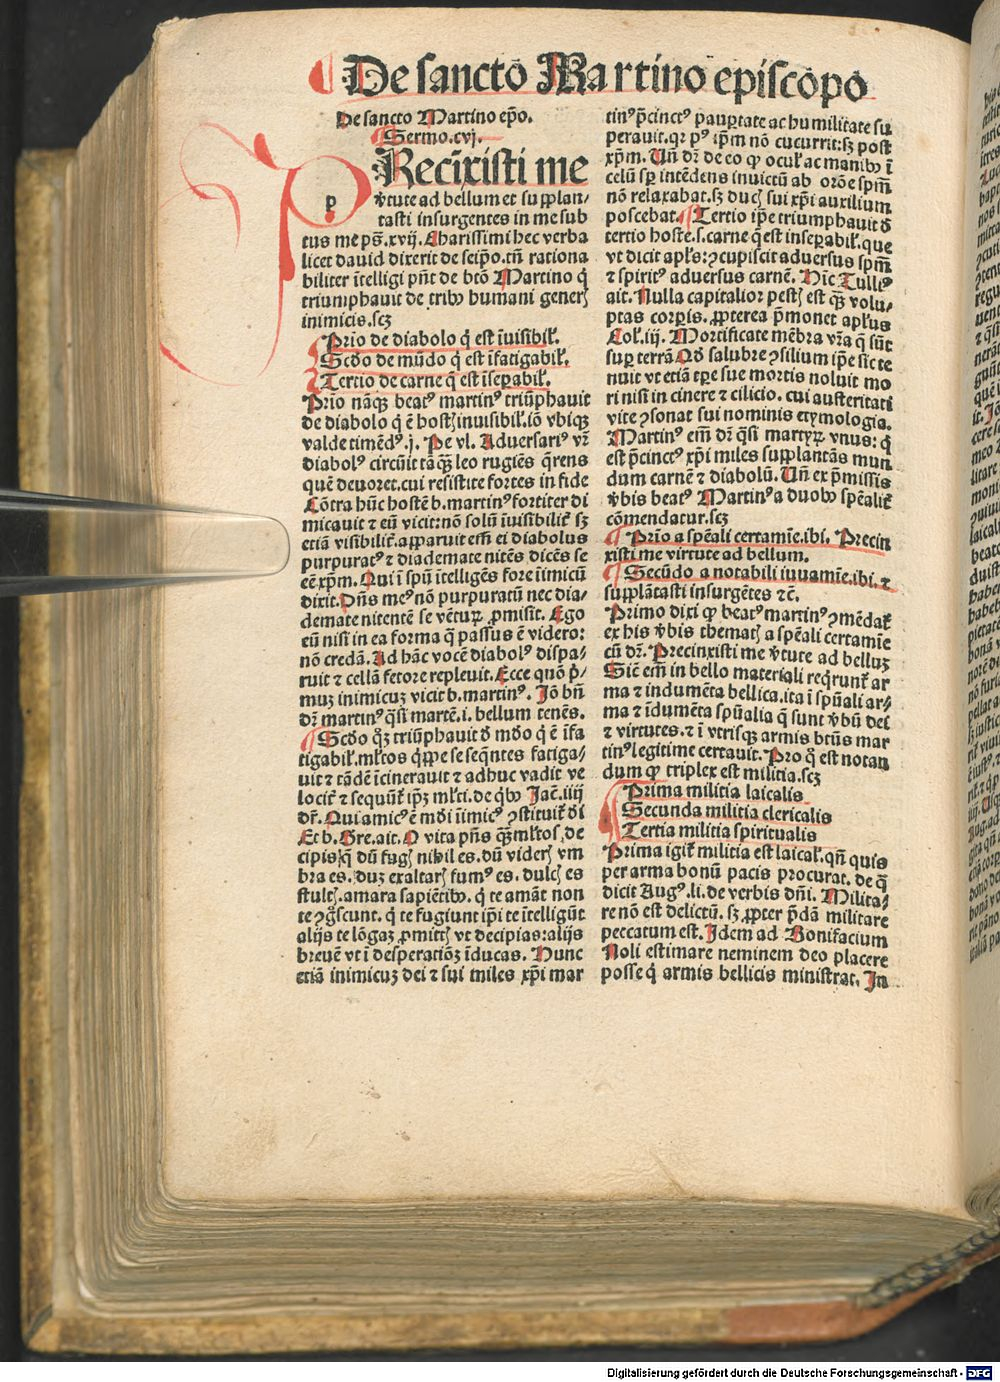 De sancto Martino episcopo
De sancto Martino ep̄o.
Sermo.cvj.
p
Precīxisti me
v̄tute ad bellum et supplan-
tasti insurgentes in me sub
tus me pṡ.xvij. Charissimi hec verba
licet dauid dixerit de seip̄o.tn̄ rationa
biliter ītelligi pn̄t de btō Martino q̇
triumphauit de tribꝰ humani generꝭ
inimicis.scꝫ
Prīo de diabolo q̇ est īuisibiƚ.
Scd̄o de mūdo q̇ est īfatigabiƚ.
Tertio de carne q̄ est īseꝑabiƚ.
Prīo nāqꝫ beatꝰ martinꝰ triūphauit
de diabolo q̇ ē hostꝭ inuisibiƚ.iō vbiqꝫ
valde timēdꝰ.j. Pe vl. Aduersariꝰ vr̄
diabolꝰ circūit tāqꝫ̄ leo rugiēs q̄rens
quē deuoret.cui resistite fortes in fide
Cōtra hūc hostē b. martinꝰ fortiter di
micauit ⁊ eū vicit:nō solū īuisibilit̄ sꝫ
etiā visibilit̄.apparuit em̄ ei diabolus
purpuratꝰ ⁊ diademate nitēs dicēs se
eē xp̄m. Qui ī spū ītelligēs fore īimicū
dixit.Dn̄s meꝰ nō purpuratū nec dia-
demate nitentē se vētuꝝ ꝓmisit. Ego
eū nisi in ea forma q̄ passus ē videro:
nō credā. Ad hāc vocē diabolꝰ dispa-
ruit ⁊ cellā fetore repleuit. Ecce quō p̄-
muꝫ inimicuꝫ vicit b.martinꝰ. Iō bn̄
dr̄ martinꝰ q̄si martē.i.bellum tenēs.
Scd̄o q̄ꝫ triūphauit d̄ mūdo q̇ ē īfa
tigabiƚ.mƚtos q̄ppe se seq̄ntes fatiga-
uit ⁊ tādē īcinerauit ⁊ adhuc vadit ve
locit̄ ⁊ sequūt̄ ip̄ꝫ mƚti.de q̇bꝰ Jac̄.iiij
dr̄. Qui amicꝰ ē mūdi īimicꝰ ꝯstituit̄ di
Et b. Gre.ait. O vita p̄ns qꝫ̄ mƚtos de
cipis:q̄ dū fugꝭ nihil es.dū viderꝭ vm
bra es.duꝫ exaltarꝭ fumꝰ es. dulcꝭ es
stultꝭ.amara sapiētibꝰ.q̇ te amāt non
te ꝯgꝰscunt.q̇ te fugiunt ip̄i te ītelligūt
alijs te lōgaꝫ ꝓmittꝭ vt decipias:alijs
breuē vt ī desperationꝫ īducas. Nunc
etiā inimicuꝫ dei ⁊ sui miles xp̄i mar
tinꝰ p̄cinctꝰ paupertate ac humilitate su
perauit.qr pꝰ ip̄m nō cucurrit:sꝫ post
xp̄m. Un̄ dꝫ de eo qꝙ oculꝭ ac manibꝰ ī
celū sp̄ intēdens inuictū ab orōe spm̄
nō relaxabat.sꝫ ducꝭ sui xp̄i auxilium
poscebat. Tertio ip̄e triumphauit d̄
tertio hoste.s.carne q̄ est inseꝑabiƚ.que
vt dicit apƚs:ꝯcupiscit aduersus spm̄
⁊ spiritꝰ aduersus carnē. Hīc Tulliꝰ
ait. Nulla capitalior pestꝭ est qꝫ̄ volu-
ptas corꝑis. ꝓpterea p̄monet apƚus
Coƚ.iij. Mortificate mēbra vr̄a q̄ sūt
suꝑ terrā. Qd̄ salubre ꝯsilium ip̄e sic te
nuit vt etiā tꝑe sue mortis noluit mo
ri nisi in cinere ⁊ cilicio. cui austeritati
vite ꝯsonat sui nominis etymologia.
Martinꝰ em̄ dꝫ q̄si martyꝝ vnus: q̇
est p̄cinctꝰ xp̄i miles supplantās mun
dum carnē ⁊ diabolū. Un̄ ex p̄missis
v̄bis beatꝰ Martinꝰ a duobꝰ spēalit̄
cōmendatur.scꝫ
Prīo a spēali certamīe.ibi. Precin
xisti me virtute ad bellum.
Secūdo a notabili iuuamīe.ibi. ⁊
supplātasti insurgētes ⁊c̄.
Primo dixi qꝙ beatꝰ martinꝰ ꝯmēdat̄
ex his v̄bis thematꝭ a spēali certamīe
cū dꝫ. Precinxisti me v̄tute ad belluꝫ
Sic̄ em̄ in bello materiali req̄runt̄ ar
ma ⁊ indumēta bellica.ita ī spūali ar-
ma ⁊ īdumēta spūalia q̄ sunt v̄bū dei
⁊ virtutes. ⁊ ī vtrisqꝫ armis btūs mar
tinꝰ legitime certauit. Pro q̇ est notan
dum qꝙ triplex est militia.scꝫ
Prima militia laicalis
Secunda militia clericalis
Tertia militia spiritualis
Prima igit̄ militia est laicaƚ.qn̄ quis
per arma bonū pacis procurat. de q̄
dicit Augꝰ.li.de verbis dn̄i. Milita-
re nō est delictū. sꝫ ꝓpter p̄dā militare
peccatum est. Idem ad Bonifacium
Noli estimare neminem deo placere
posse q̇ armis bellicis ministrat. In
Digitalisierung gefördert durch die Deutsche Forschungsgemeinschaft - DFG